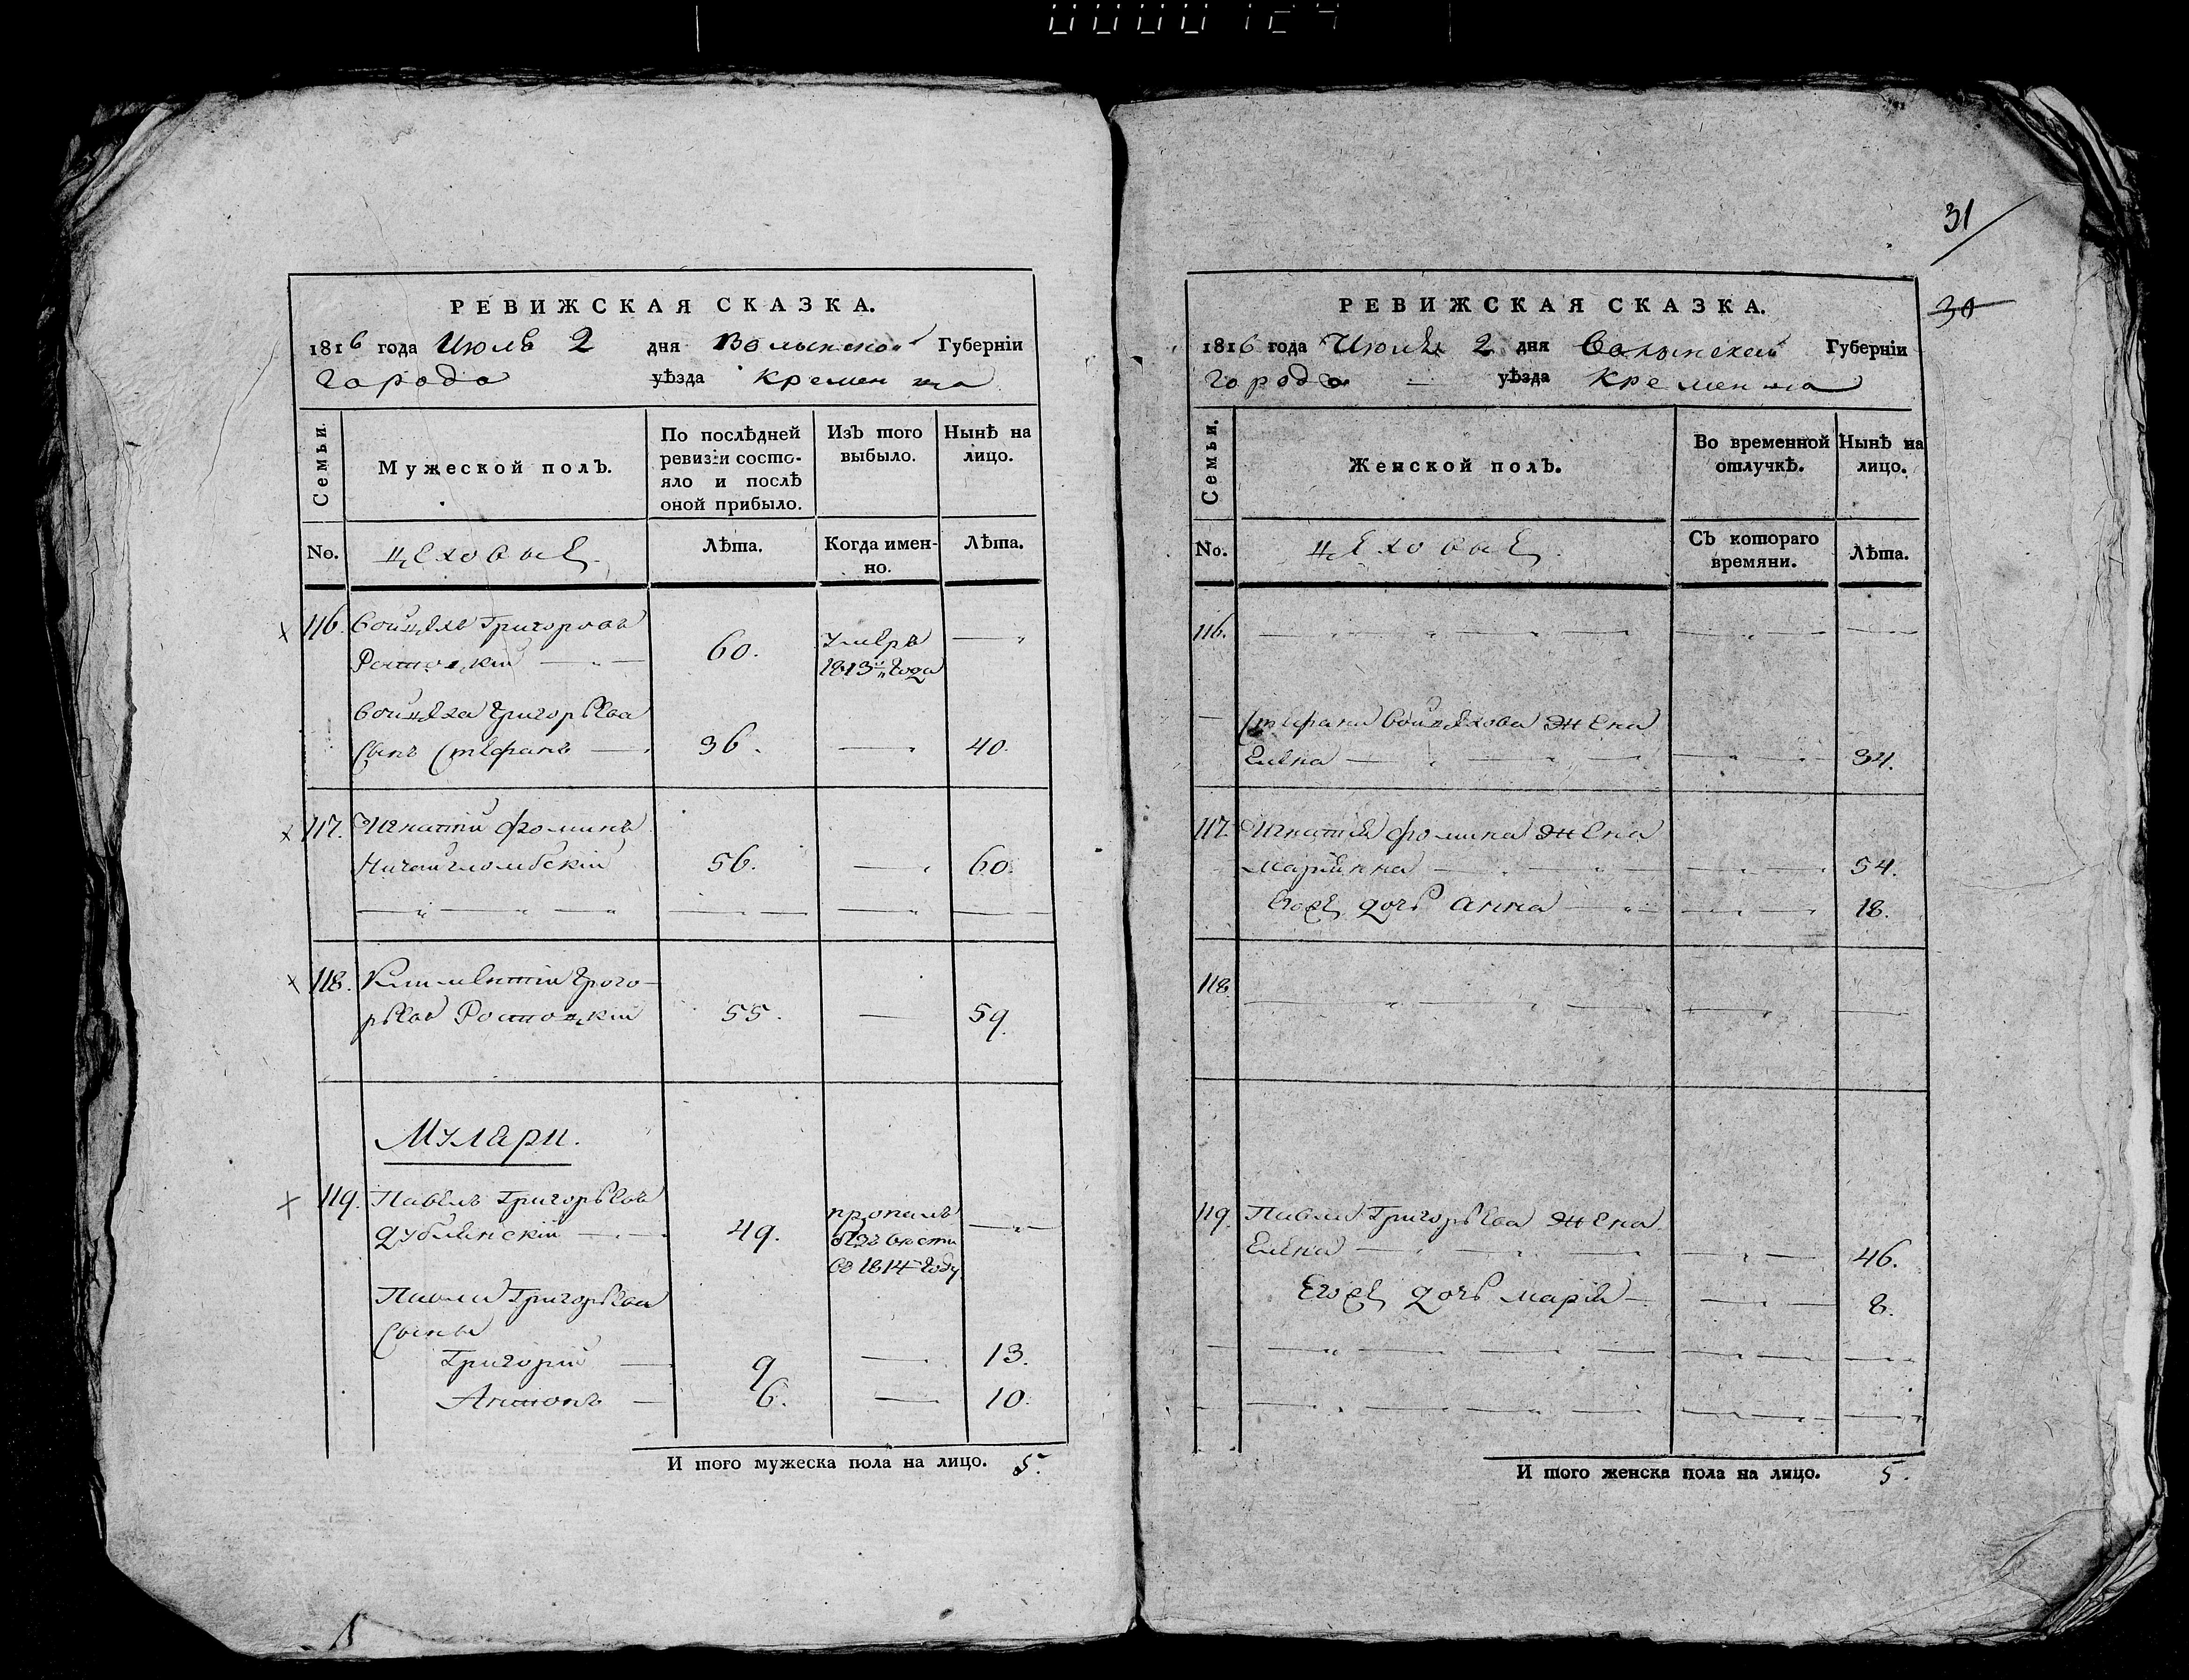 0000124
РЕВИЖСКАЯ СКАЗКА.
1816 года Июля 2 дня Волынской Губерніи
Города уѣзда Кременца
Семьи.
Мужеской полъ.
По послѣдней ревизіи состо-
яло и послѣ
оной прибыло.
Изъ того
выбыло.
Нынѣ на
лицо.
No.
цеховые
Лѣта.
Когда имен-
но.
Лѣта.
116. Войцехъ Григорьевъ
Ростоцкій 60. умеръ
1813 года
Войцеха Григорьева
сынъ Стефанъ 36. 40.
117. Игнатій Фоминъ
56. 60.
118. Климентій Григо-
рьевъ Ростоцкій 55. 59.
Муляри.
119. Павелъ Григорьевъ
Дублянскій 49. пропалъ
безъ вести
въ 1814 году
Павла Григорьева
сыны
Григорій 9 13.
Антонъ 6. 10.
И того мужеска пола на лицо. 5.
31
30
РЕВИЖСКАЯ СКАЗКА.
1816 года Июля 2 дня Волынской Губерніи
Города уѣзда Кременца
Семьи.
Женской полъ.
Во временной
отлучкѣ.
Нынѣ на
лицо.
No.
цеховые
Съ котораго
времяни.
Лѣта.
116.
Стефана Войцехова жена
Елена 34.
117. Игнатія Фомина жена
Маріянна 54.
Егоже дочь Анна 18.
118.
119. Павла Григорьева жена
Елена 46.
Егоже дочь Марія 8.
И того женска пола на лицо. 5.